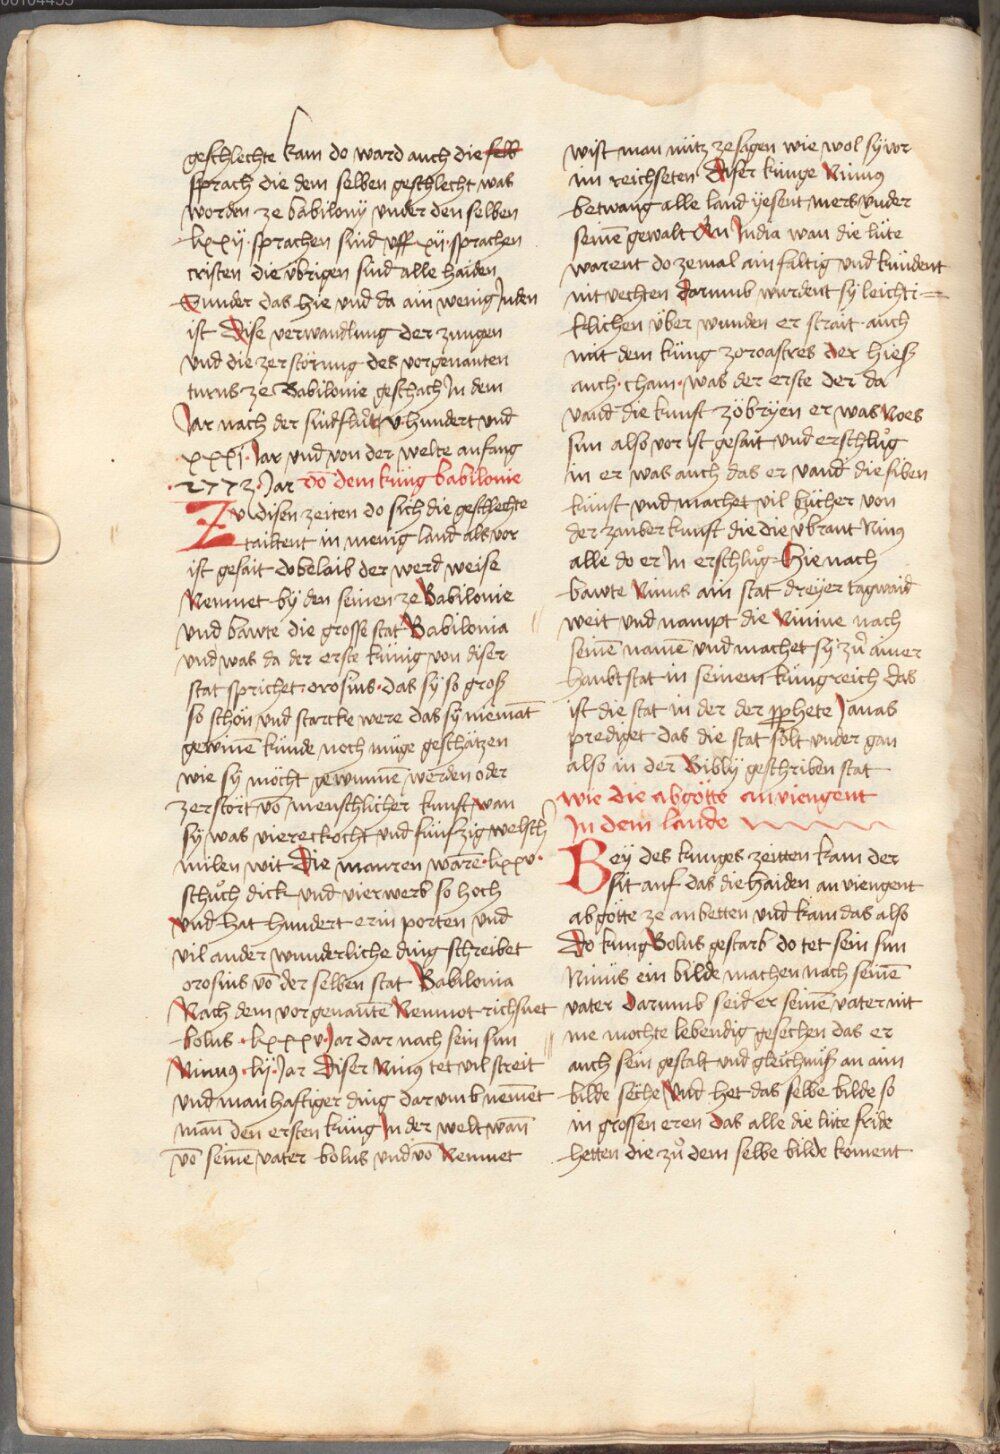 geschlechte kam do ward auch die selb
sprach die dem selben geschlecht was
worden ze babilony vnder den selben
lxxij · sprachen sind vff xij · sprachen
cristen die vbrigen sind alle haiden
Sunder das hie vnd da ain wenig Juden
ist Dise verwandlung der zungen
vnd die zerstörung des vorgenanten
turns ze Babilonie geschach In dem
Jar nach der sindflůt v hundert vnd
xxxj · Jar vnd von der welte anfang
· 2773 · Jar võ dem küng babilonie
Zu disen zeiten do sich die geschlechte
tailtent in menig land als vor
ist gesait do belaib der werd weise
Nemnet by den seinen ze Babilonie
vnd bawte die grosse stat Babilonia
vnd was da der erste künig von diser
stat sprichet · orosius · das sy so groß
so schön vnd starcke were das sy niemãt
gewinẽ künde noch müge geschätzen
wie sy möcht gewunnẽ werden oder
zerstört võ menschlicher kunst wan
sy was viereckocht vnd fünfzig welsch
milen wit Die mauren warẽ · lxxv ·
schůch dick vnd vierwerb so hoch
vnd hat hundert erin porten vnd
vil ander wunderliche ding schreibet
orosius võ der selben stat Babilonia
Nach dem vorgenantẽ Nemrot richsnet
bolus · lxxxv · Jar dar nach sein sun
Ninus · lij · Jar Diser Ninus tet vil streit
vnd manhaftiger ding dar vmb nem̃et
mañ den ersten küng In der welt wañ
võ seinẽ vater bolus vnd võ Nemnet
wist man nütz ze sagen wie wol sy vor
im reichseten Diser künge Ninus
betwang alle land yesent mers vnder
seinẽ gewalt An India wan die lüte
warent do zemal ainfaltig vnd kündent
nit vechten darumb wurdent sy leichti=
klichen über wunden er strait auch
mit dem küng zoroastres der hieß
auch · cham · was der erste der da
vand die kunst zöbryen er was Noes
sun also vor ist gesait vnd erschlůg
in er was auch das er vand die siben
künst vnd machet vil bücher von
der zauberkunst die die vbrant Ninus
alle do er In erschlůg Hie nach
bawte Ninus ain stat dreyer tagwaid
weit vnd nampt die Niniue nach
seinẽ namẽ vnd machet sy zů ainer
haubtstat in seinem küngreich das
ist die stat in der der pphete Janas
prediget das die stat sölt vnder gan
also in der Bibly geschriben stat
wie die abgötte anviengent
In dem lande
Bey des kunges zeitten kam der
sit auf das die haiden an viengent
abgötte ze anbetten vnd kam das also
Do küng Bolus gestarb do tet sein sun
Ninus ein bilde machen nach seinẽ
vater darumb seid er seinẽ vater nit
me mochte lebendig gesechen das er
auch sein gestalt vnd gleichnuß an aim
bilde seche Vnd het das selbe bilde so
in grossen eren das alle die lüte fride
hetten die zů dem selbe bilde koment